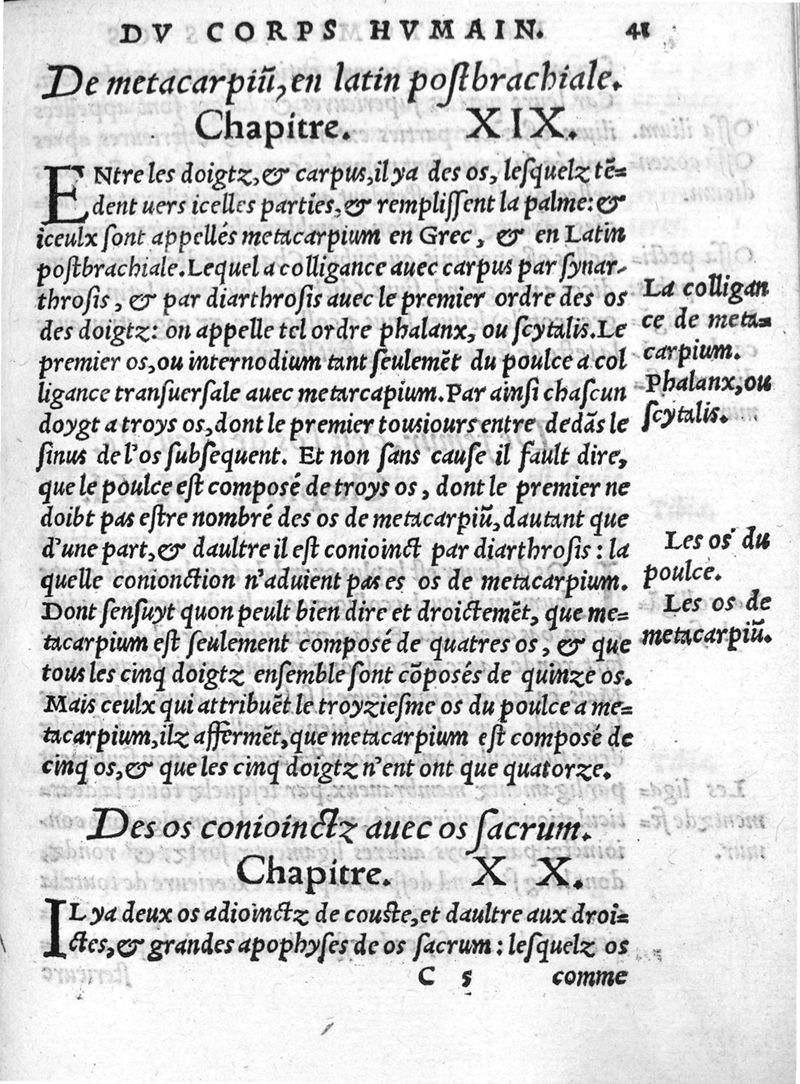 DV CORPS HVMAIN. 41
De metacarpiũ, en latin poſtbrachiale.
Chapitre. XIX.
ENtre les doigtz, & carpus, il ya des os, leſquelz tẽ=
dent uers icelles parties, & rempliſſent la palme: &
iceulx ſont appellés metacarpium en Grec, & en Latin
poſtbrachiale. Lequel a colligance auec carpus par ſynar-
throſis, & par diarthroſis auec le premier ordre des os
des doigtz: on appelle tel ordre phalanx, ou ſcytalis. Le
premier os, ou internodium tant ſeulemẽt du poulce a col
ligance tranſuerſale auec metarcapium. Par ainſi chaſcun
doygt a troys os, dont le premier touſiours entre dedãs le
ſinus de l'os ſubſequent. Et non ſans cauſe il fault dire,
que le poulce eſt compoſé de troys os, dont le premier ne
doibt pas eſtre nombré des os de metacarpiũ, dautant que
d'une part, & daultre il eſt conioinct par diarthroſis: la
quelle conionction n'aduient pas es os de metacarpium.
Dont ſenſuyt quon peult bien dire et droictemẽt, que me=
tacarpium eſt ſeulement compoſé de quatres os, & que
tous les cinq doigtz enſemble ſont cõpoſés de quinze os.
Mais ceulx qui attribuẽt le troyzieſme os du poulce a me=
tacarpium, ilz affermẽt, que metacarpium eſt compoſé de
cinq os, & que les cinq doigtz n'ent ont que quatorze.
La colligan
ce de meta=
carpium.
Phalanx, ou
ſcytalis.
Les os du
poulce.
Les os de
metacarpiũ.
Des os conioinctz auec os ſacrum.
Chapitre. XX.
IL ya deux os adioinctz de couſte, et daultre aux droi=
ctes, & grandes apophyſes de os ſacrum: leſquelz os
C 5 comme